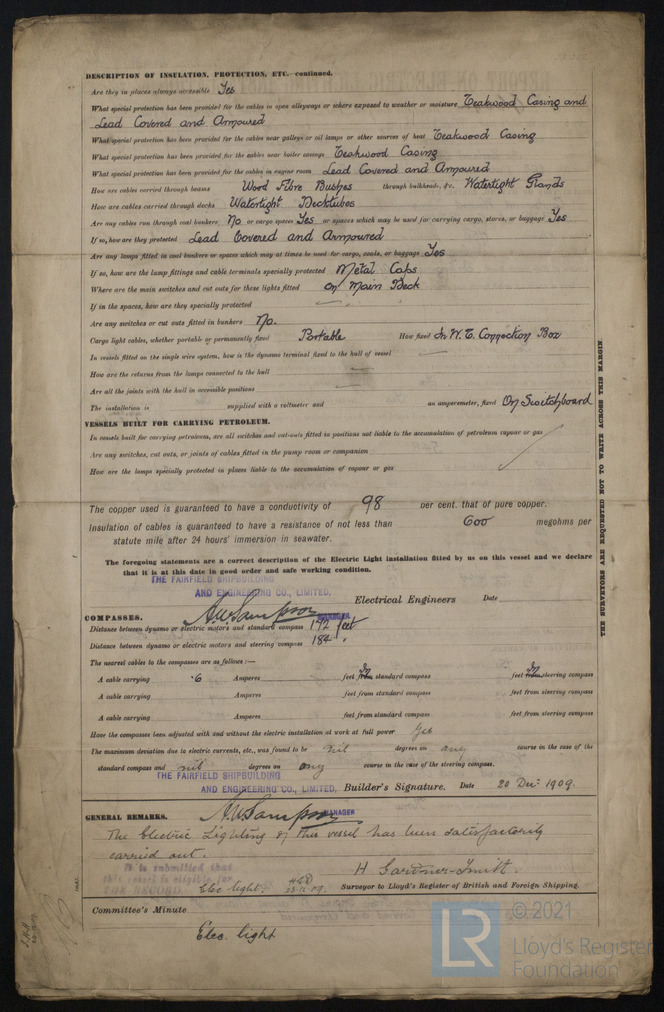 DESCRIPTION OF INSULATION, PROTECTION, ETC.—continued.
Are they in places always accessible Yes
What special protection has been provided for the cables in open alleyways or where exposed to weather or moisture Teakwood Casing and
Lead Covered and Armoured
What special protection has been provided for the cables near galleys or oil lamps or other sources of heat Teakwood Casing
What special protection has been provided for the cables near boiler casings Teakwood Casing
What special protection has been provided for the cables in engine room Lead Covered and Armoured
How are cables carried through beams Wood Fibre Bushes through bulkheads, &c. Watertight Glands
How are cables carried through decks Watertight Decktubes
Are any cables run through coal bunkers No or cargo spaces Yes or spaces which may be used for carrying cargo, stores, or baggage Yes
If so, how are they protected Lead Covered and Armoured
Are any lamps fitted in coal bunkers or spaces which may at times be used for cargo, coals, or baggage Yes
If so, how are the lamp fittings and cable terminals specially protected Metal Caps
Where are the main switches and cut outs for these lights fitted On Main Deck
If in the spaces, how are they specially protected
Are any switches or cut outs fitted in bunkers No.
Cargo light cables, whether portable or permanently fixed Portable How fixed In W.T. Connection Box
In vessels fitted on the single wire system, how is the dynamo terminal fixed to the hull of vessel
How are the returns from the lamps connected to the hull
Are all the joints with the hull in accessible positions
The installation is supplied with a voltmeter and an amperemeter, fixed On Switchboard
VESSELS BUILT FOR CARRYING PETROLEUM.
In vessels built for carrying petroleum, are all switches and cut-outs fitted in positions not liable to the accumulation of petroleum vapour or gas
Are any switches, cut outs, or joints of cables fitted in the pump room or companion
How are the lamps specially protected in places liable to the accumulation of vapour or gas
The copper used is guaranteed to have a conductivity of 98 per cent. that of pure copper.
Insulation of cables is guaranteed to have a resistance of not less than 600 megohms per
statute mile after 24 hours' immersion in seawater.
The foregoing statements are a correct description of the Electric Light installation fitted by us on this vessel and we declare
that it is at this date in good order and safe working condition.
THE FAIRFIELD SHIPBUILDING
AND ENGINEERING CO., LIMITED,
A.W. Sampson MANAGER Electrical Engineers Date
COMPASSES.
Distance between dynamo or electric motors and standard compass 192 feet
Distance between dynamo or electric motors and steering compass 184 "
The nearest cables to the compasses are as follows:—
A cable carrying .6 Amperes In feet from standard compass In feet from steering compass
A cable carrying Amperes feet from standard compass feet from steering compass
A cable carrying Amperes feet from standard compass feet from steering compass
Have the compasses been adjusted with and without the electric installation at work at full power Yes
The maximum deviation due to electric currents, etc., was found to be nil degrees on any course in the case of the
standard compass and nil degrees on any course in the case of the steering compass.
THE FAIRFIELD SHIPBUILDING
AND ENGINEERING CO., LIMITED, Builder's Signature. Date 20 Dec: 1909.
A.W. Sampson MANAGER
GENERAL REMARKS.
The Electric Lighting of this vessel has been satisfactorily
carried out.
It is submitted that
this vessel is eligible for
THE RECORD. Elec light.
H Gardner-Smith.
Surveyor to Lloyd's Register of British and Foreign Shipping.
Committee's Minute
Elec. light
THE SURVEYORS ARE REQUESTED NOT TO WRITE ACROSS THIS MARGIN.
LR
© 2021
Lloyd's Register
Foundation